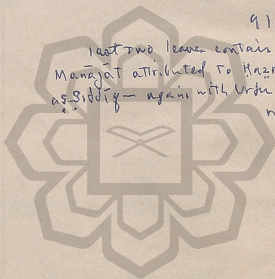 91
last two leaves contain
Manājāt attributed to Haẓr
aṣ-Ṣiddīq — again with Urdu